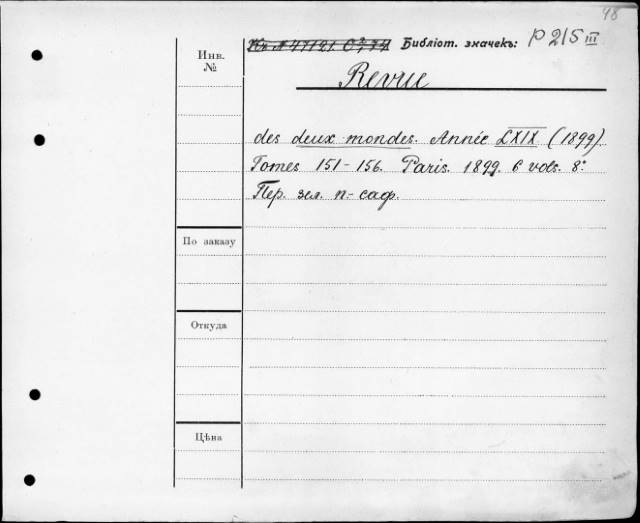 48
Библіот. значекъ: P 215 III
Инв. №
Revue
des deux mondes. Année LXIX (1899).
Tomes 151-156. Paris. 1899. 6 vols. 8°
Пер. зел. п.- саф.
По заказу
Откуда
Цѣна